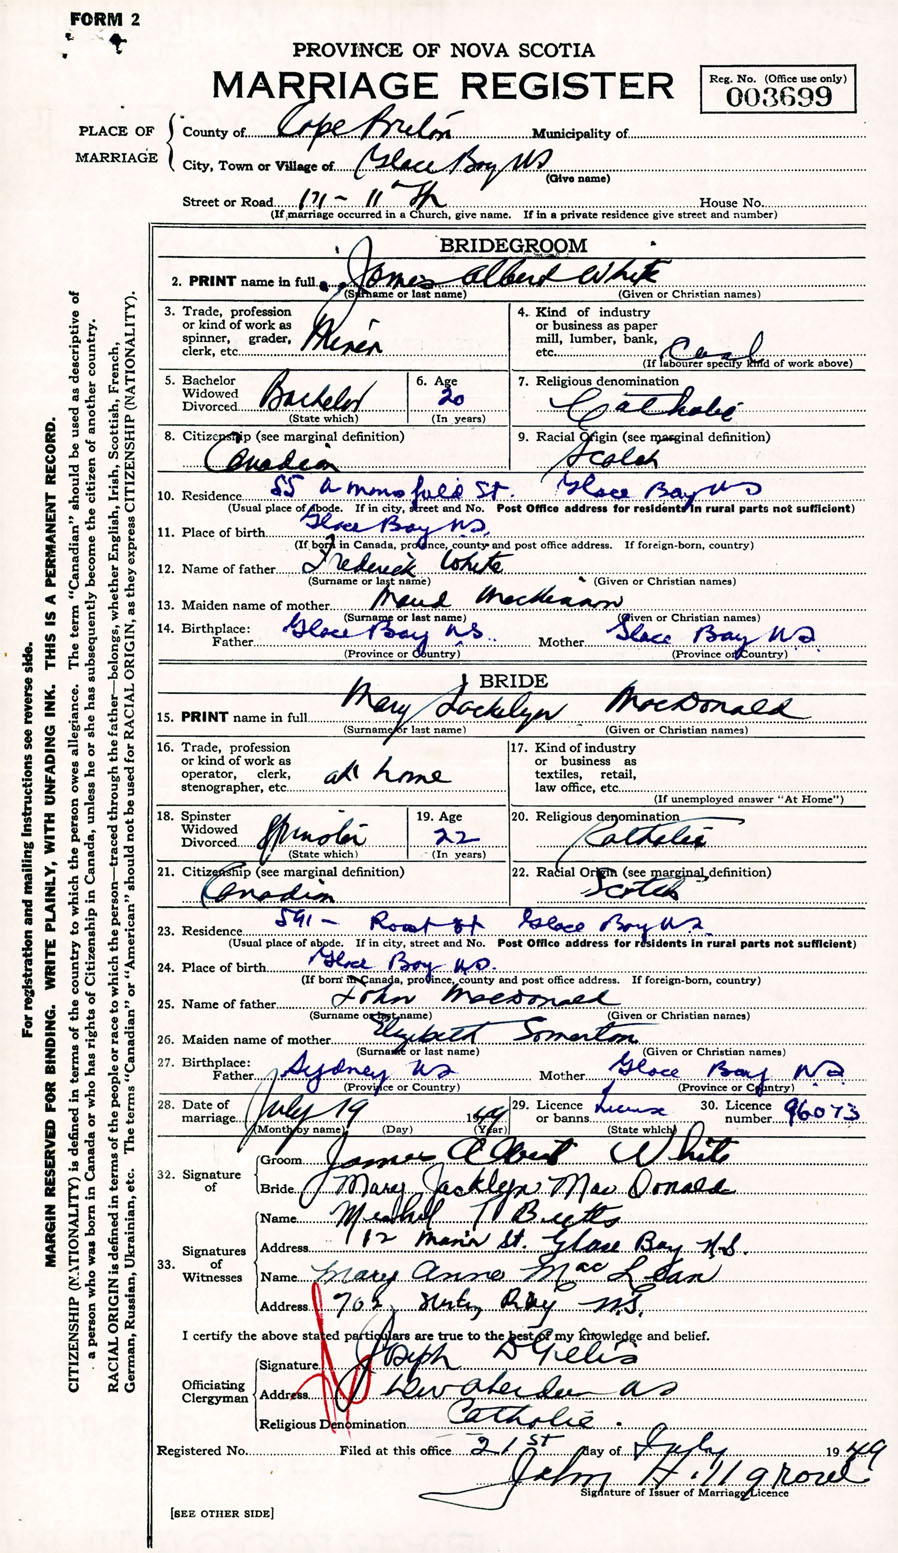 FORM 2
PROVINCE OF NOVA SCOTIA
MARRIAGE REGISTER
Reg. No. (Office use only)
003699
PLACE OF MARRIAGE
County of Cape Breton Municipality of
City, Town or Village of Glace Bay NS
(Give name)
Street or Road 171 - 11th House No.
(If marriage occurred in a Church, give name. If in a private residence give street and number)
BRIDEGROOM
2. PRINT name in full James Albert White
(Surname or last name) (Given or Christian names)
3. Trade, profession or kind of work as spinner, grader, clerk, etc. Miner
4. Kind of industry or business as paper mill, lumber, bank, etc. Coal
(If labourer specify kind of work above)
5. Bachelor Widowed Divorced Bachelor
(State which)
6. Age 20
(In years)
7. Religious denomination
Catholic
8. Citizenship (see marginal definition)
Canadian
9. Racial Origin (see marginal definition)
Scotch
10. Residence 55 St. Glace Bay NS
(Usual place of abode. If in city, street and No. Post Office address for residents in rural parts not sufficient)
11. Place of birth Glace Bay NS.
(If born in Canada, province, county and post office address. If foreign-born, country)
12. Name of father Frederick White
(Surname or last name) (Given or Christian names)
13. Maiden name of mother Maud MacKinnon
(Surname or last name) (Given or Christian names)
14. Birthplace: Father Glace Bay NS. Mother Glace Bay NS
(Province or Country) (Province or Country)
BRIDE
15. PRINT name in full Mary Jackelyn MacDonald
(Surname or last name) (Given or Christian names)
16. Trade, profession or kind of work as operator, clerk, stenographer, etc. at home
17. Kind of industry or business as textiles, retail, law office, etc.
(If unemployed answer "At Home")
18. Spinster Widowed Divorced Spinster
(State which)
19. Age 22
(In years)
20. Religious denomination
Catholic
21. Citizenship (see marginal definition)
Canadian
22. Racial Origin (see marginal definition)
Scotch
23. Residence 591 - Roost St Glace Bay NS.
(Usual place of abode. If in city, street and No. Post Office address for residents in rural parts not sufficient)
24. Place of birth Glace Bay NS.
(If born in Canada, province, county and post office address. If foreign-born, country)
25. Name of father John MacDonald
(Surname or last name) (Given or Christian names)
26. Maiden name of mother Elizabeth Somerton
(Surname or last name) (Given or Christian names)
27. Birthplace: Father Sydney NS Mother Glace Bay NS
(Province or Country) (Province or Country)
28. Date of marriage July 19 1949
(Month by name) (Day) (Year)
29. Licence or banns License
(State which)
30. Licence number 96073
32. Signature of
Groom James Albert White
Bride Mary Jacklyn MacDonald
33. Signatures of Witnesses
Name Michael T Butts
Address 12 Main St. Glace Bay N.S.
Name Mary Anne MacLean
Address 702, Bay N.S.
I certify the above stated particulars are true to the best of my knowledge and belief.
Officiating Clergyman
Signature Joseph D Gillis
Address New Aberdeen NS
Religious Denomination Catholic.
Registered No. Filed at this office 21st day of July 1949
John Hillgrove
Signature of Issuer of Marriage Licence
[SEE OTHER SIDE]
For registration and mailing instructions see reverse side.
MARGIN RESERVED FOR BINDING. WRITE PLAINLY, WITH UNFADING INK. THIS IS A PERMANENT RECORD.
CITIZENSHIP (NATIONALITY) is defined in terms of the country to which the person owes allegiance. The term "Canadian" should be used as descriptive of
a person who was born in Canada or who has rights of Citizenship in Canada, unless he or she has subsequently become the citizen of another country.
RACIAL ORIGIN is defined in terms of the people or race to which the person—traced through the father—belongs, whether English, Irish, Scottish, French,
German, Russian, Ukrainian, etc. The terms "Canadian" or "American" should not be used for RACIAL ORIGIN, as they express CITIZENSHIP (NATIONALITY).